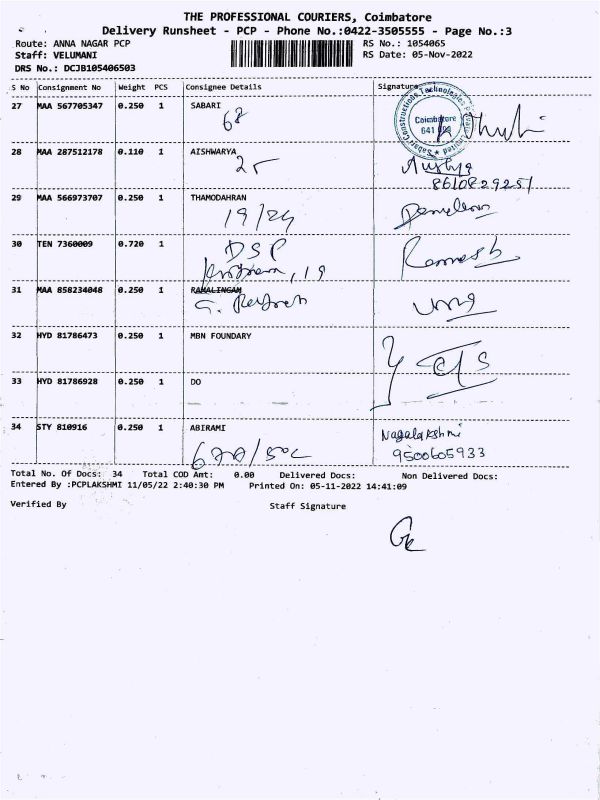 THE PROFESSIONAL COURIERS, Coimbatore
Delivery Runsheet - PCP - Phone No.:0422-3505555 - Page No.:3
Route: ANNA NAGAR PCP RS No.: 1054065
Staff: VELUMANI RS Date: 05-Nov-2022
DRS No.: DCJB105406503
S No Consignment No Weight PCS Consignee Details Signature
27 MAA 567705347 0.250 1 SABARI
68
Sabari Constructions Technologies Private Limited
Coimbatore
641
28 MAA 287512178 0.110 1 AISHWARYA
25
8610829251
29 MAA 566973707 0.250 1 THAMODAHRAN
19/24
30 TEN 7360009 0.720 1 DSP
19
Ramesh
31 MAA 858234048 0.250 1 RAMALINGAM
G.
Uma
32 HYD 81786473 0.250 1 MBN FOUNDARY
33 HYD 81786928 0.250 1 DO
34 STY 810916 0.250 1 ABIRAMI
Nagalakshmi
9500605933
Total No. Of Docs: 34 Total COD Amt: 0.00 Delivered Docs: Non Delivered Docs:
Entered By :PCPLAKSHMI 11/05/22 2:40:30 PM Printed On: 05-11-2022 14:41:09
Verified By Staff Signature